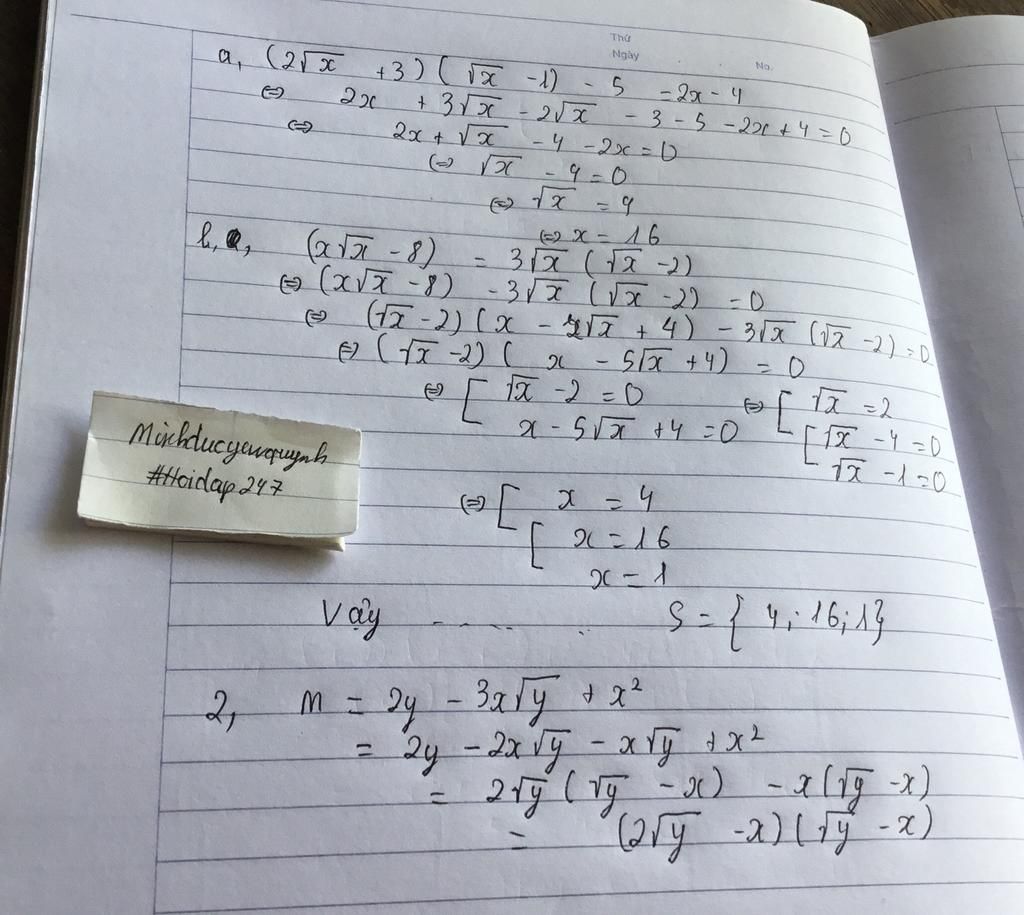 Thứ
Ngày
No.
a, (2√x + 3)(√x - 1) - 5 = 2x - 4
⇔ 2x + 3√x - 2√x - 3 - 5 - 2x + 4 = 0
⇔ 2x + √x - 4 - 2x = 0
⇔ √x - 4 = 0
⇔ √x = 4
⇔ x = 16
b, (x√x - 8) = 3√x (√x - 2)
⇔ (x√x - 8) - 3√x (√x - 2) = 0
⇔ (√x - 2)(x - 2√x + 4) - 3√x (√x - 2) = 0
⇔ (√x - 2)(x - 5√x + 4) = 0
⇔ [ √x - 2 = 0 ⇔ [ √x = 2
x - 5√x + 4 = 0 [ √x - 4 = 0
√x - 1 = 0
Minhducyeuquynh
#Hoidap247
⇔ [ x = 4
[ x = 16
x = 1
Vậy ........ S = { 4; 16; 1}
2, M = 2y - 3x√y + x²
= 2y - 2x√y - x√y + x²
= 2√y (√y - x) - x(√y - x)
= (2√y - x)(√y - x)